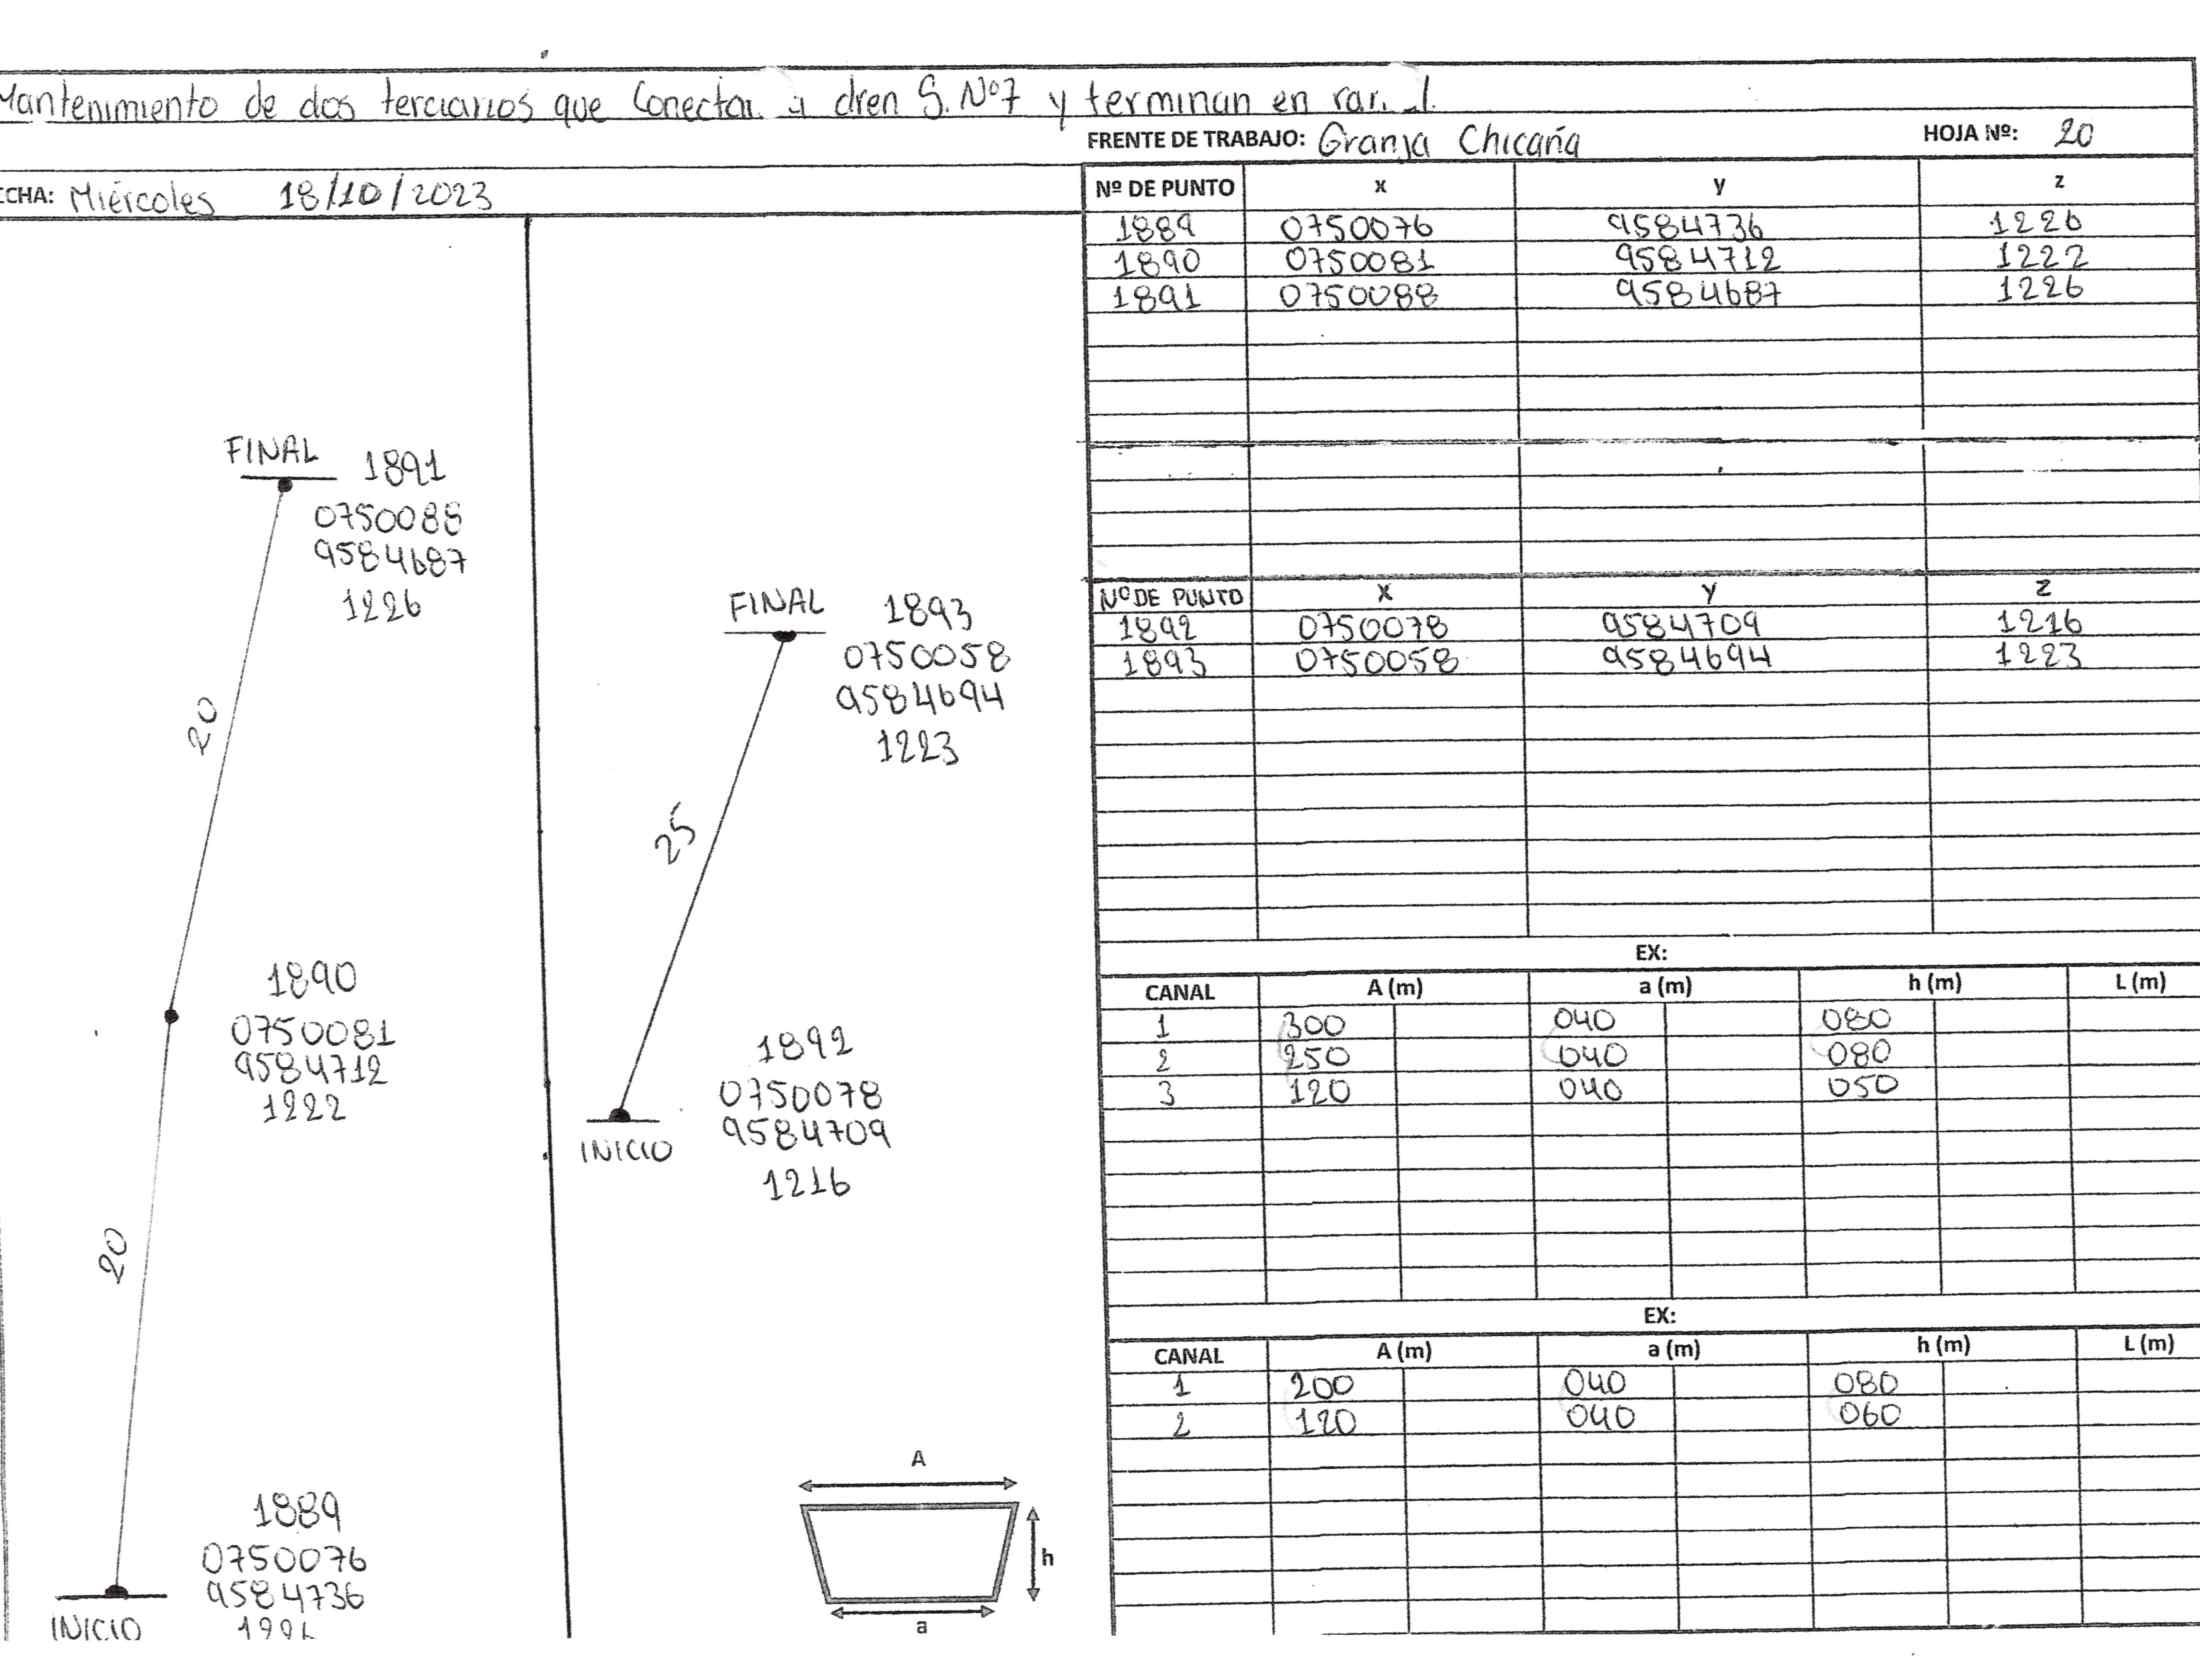 Mantenimiento de dos terciarios que Conectan a dren S. Nº7 y terminan en
FRENTE DE TRABAJO: Granja Chicaña HOJA Nº: 20
ECHA: Miércoles 18/10/2023
Nº DE PUNTO x y z
1889 0750076 9584736 1226
1890 0750081 9584712 1222
1891 0750088 9584687 1226
FINAL 1891
0750088
9584687
1226
20
1890
0750081
9584712
1222
20
1889
0750076
9584736
INICIO
FINAL 1893
0750058
9584694
1223
25
1892
0750078
9584709
1216
INICIO
Nº DE PUNTO X Y Z
1892 0750078 9584709 1216
1893 0750058 9584694 1223
EX:
CANAL A (m) a (m) h (m) L (m)
1 300 040 080
2 250 040 080
3 120 040 050
EX:
CANAL A (m) a (m) h (m) L (m)
1 200 040 080
2 120 040 060
A
h
a